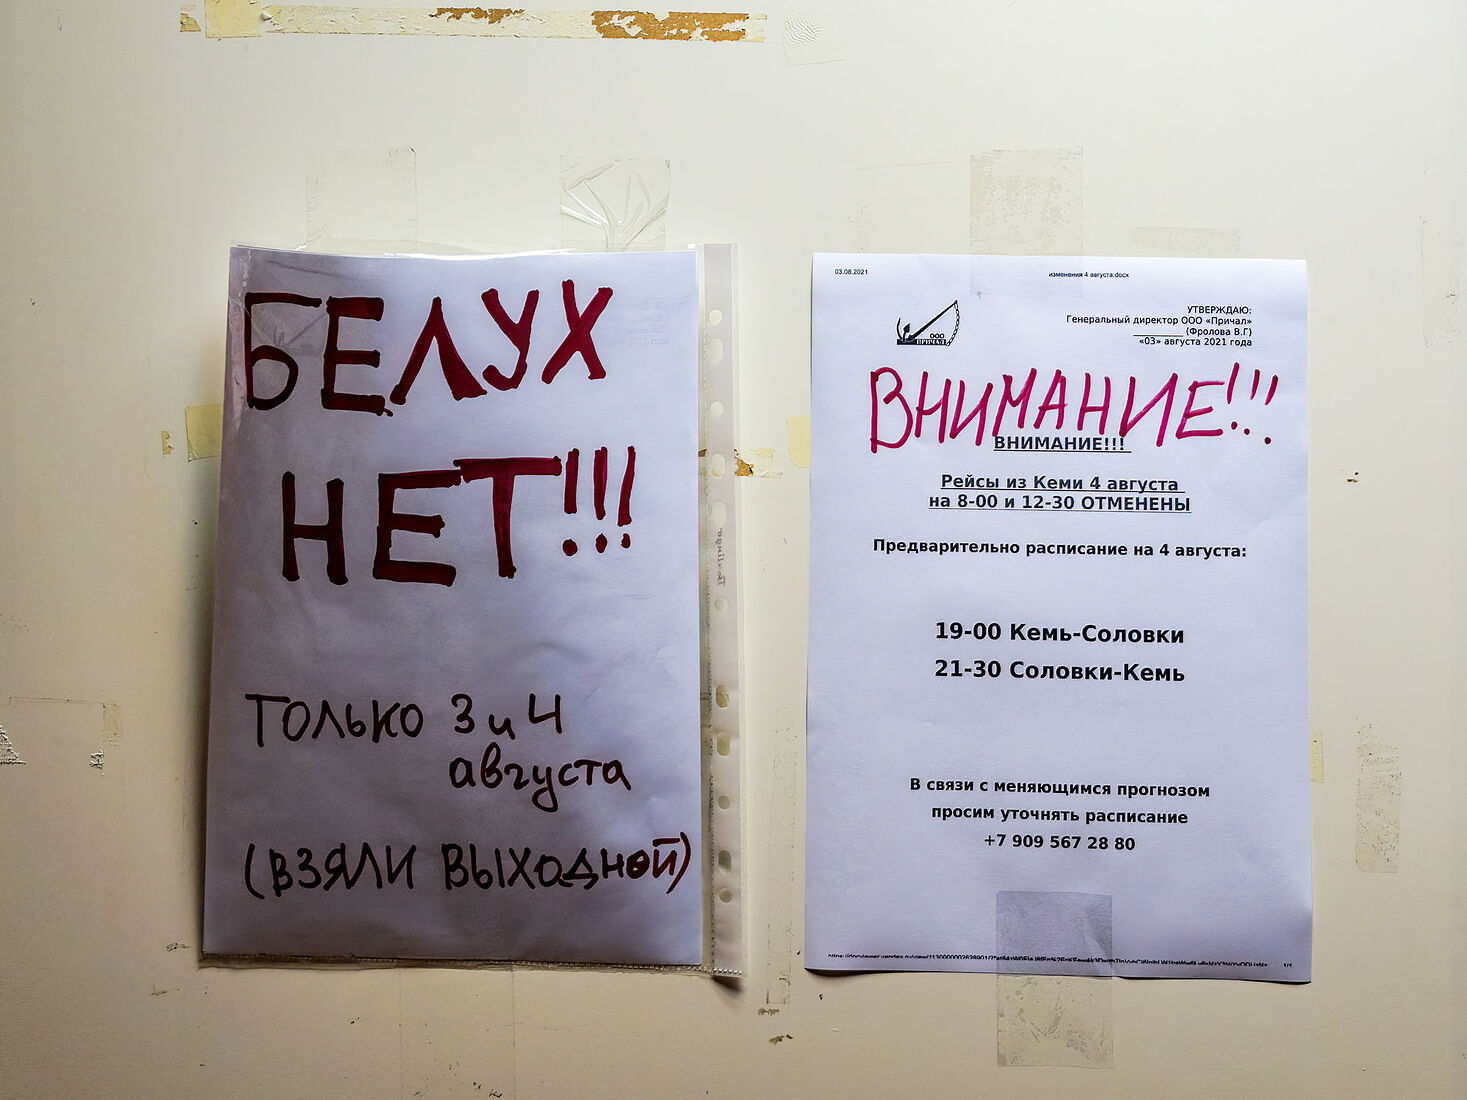 БЕЛУХ
НЕТ!!!
ТОЛЬКО 3 и 4
августа
(ВЗЯЛИ ВЫХОДНОЙ)
03.08.2021
изменения 4 августа.docx
ООО
ПРИЧАЛ
УТВЕРЖДАЮ:
Генеральный директор ООО «Причал»
__________ (Фролова В.Г)
«03» августа 2021 года
ВНИМАНИЕ!!!
ВНИМАНИЕ!!!
Рейсы из Кеми 4 августа
на 8-00 и 12-30 ОТМЕНЕНЫ
Предварительно расписание на 4 августа:
19-00 Кемь-Соловки
21-30 Соловки-Кемь
В связи с меняющимся прогнозом
просим уточнять расписание
+7 909 567 28 80
1/1